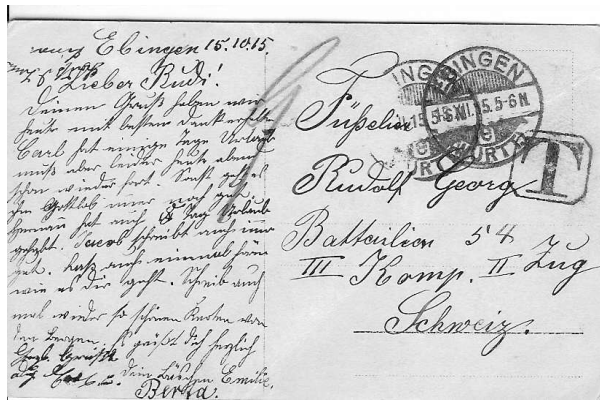 Ebingen 15.10.15.
Lieber Rudi!
Deinen Gruß haben wir
heute mit bestem Dank erhalten
Carl hat einige Tage Urlaub
muß aber leider heute abend
schon wieder fort. Sonst geht es
Gottlob noch gut.
Hermann hat auch 8 Tag Urlaub
gehabt. Jacob schreibt auch immer
gut. Laß auch einmal hören
wie es dir geht. Schreib auch
mal wieder so schönen Karten von
den Bergen. Es grüßt dich herzlich
dein Bäschen Emilie.
Berta.
EBINGEN
5-6N.
WÜRTT.
T
Füselier
Rudolf Georg
Battailion 54
III Komp. II Zug
Schweiz.